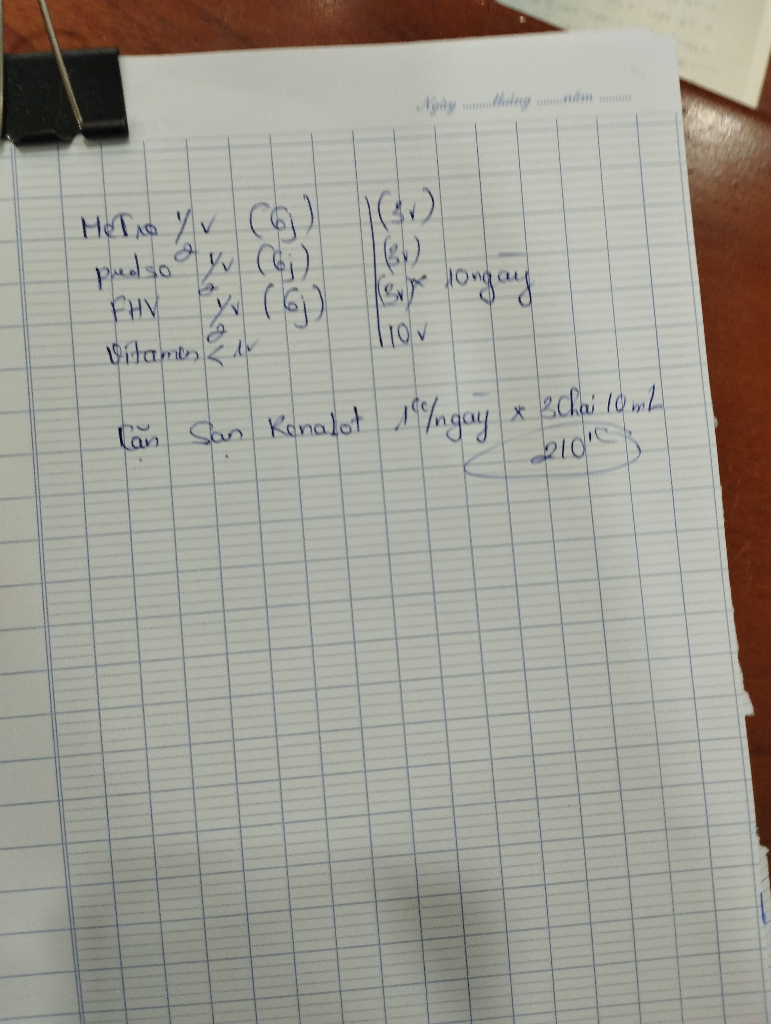 Ngày ........tháng ........năm .........
Metro 1/2 v (6j) (3v)
predso 1/2 v (6j) (3v)
FHV 1/2 v (6j) (3v) × 10 ngày
Vitamen < 1v 10 v
Cặn Sạn Kenalot 1cc/ngày × 3 Chai 10 mL
210